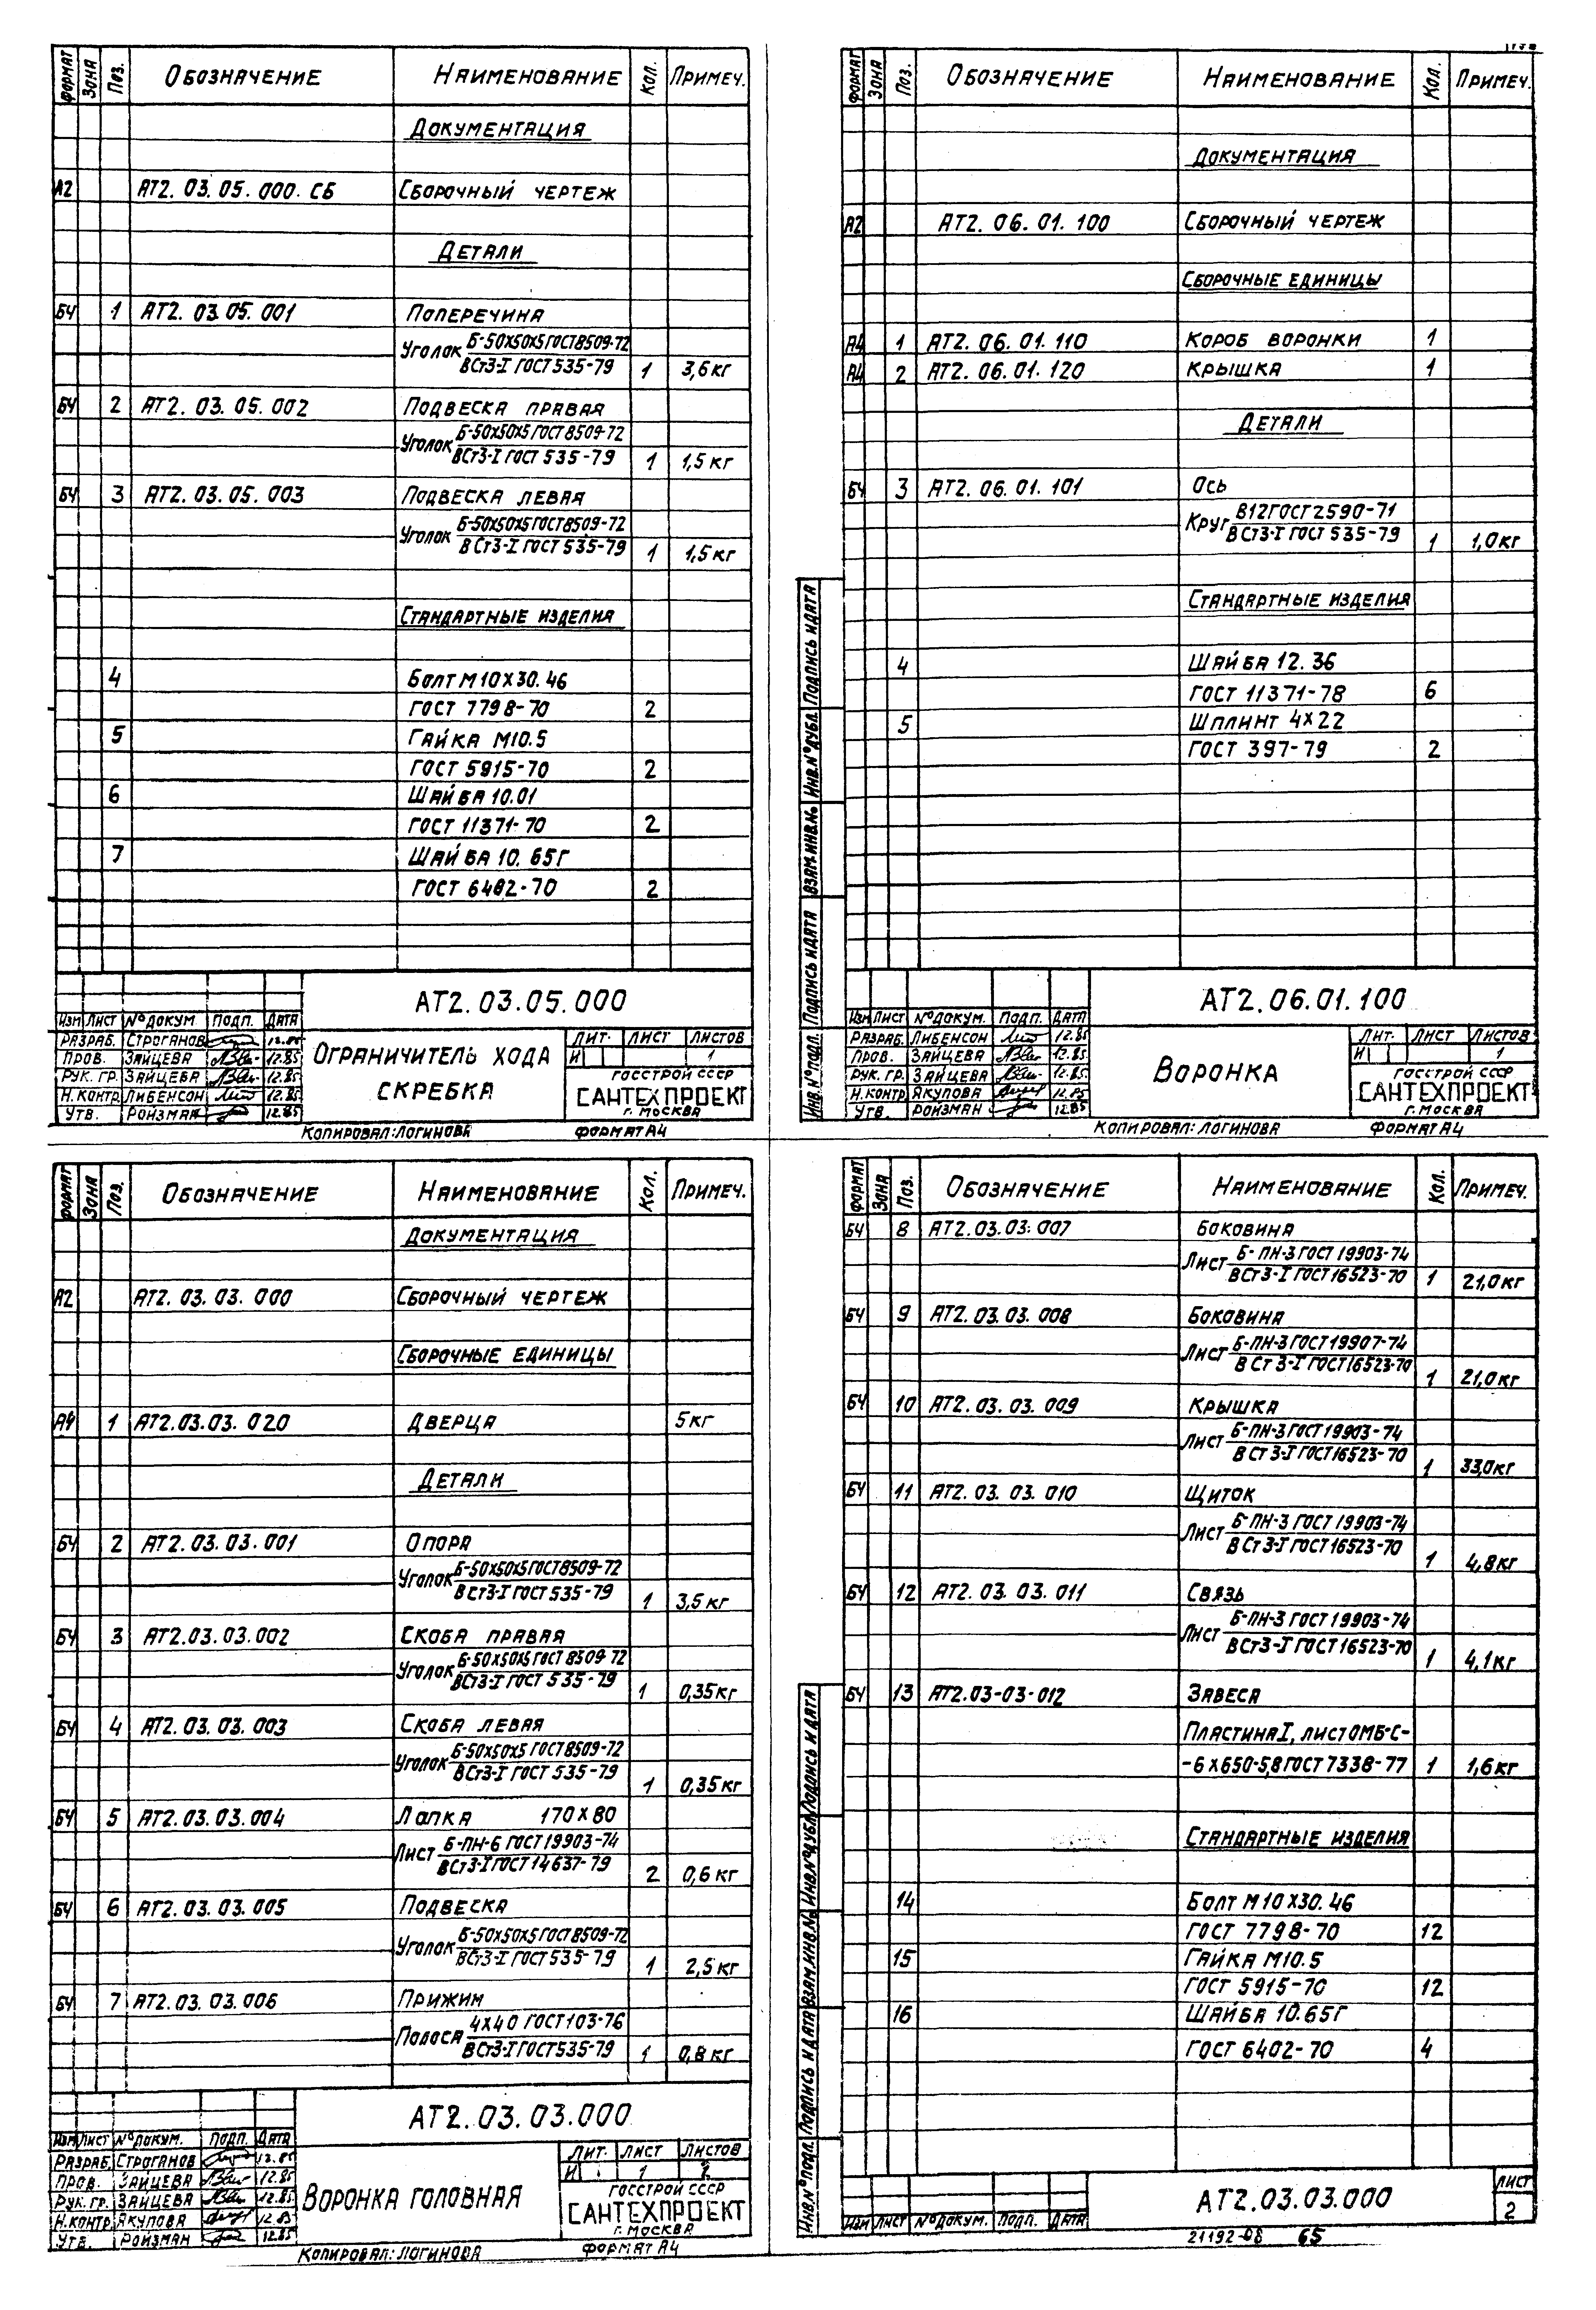 ФОРМАТ ЗОНА ПОЗ. ОБОЗНАЧЕНИЕ НАИМЕНОВАНИЕ КОЛ. ПРИМЕЧ.
ДОКУМЕНТАЦИЯ
А2 АТ2. 03. 05. 000. СБ СБОРОЧНЫЙ ЧЕРТЕЖ
ДЕТАЛИ
БЧ 1 АТ2. 03. 05. 001 ПОПЕРЕЧИНА
Уголок Б-50х50х5 ГОСТ 8509-72
ВСт3-I ГОСТ 535-79 1 3,6 кг
БЧ 2 АТ2. 03. 05. 002 ПОДВЕСКА ПРАВАЯ
Уголок Б-50х50х5 ГОСТ 8509-72
ВСт3-I ГОСТ 535-79 1 1,5 кг
БЧ 3 АТ2. 03. 05. 003 ПОДВЕСКА ЛЕВАЯ
Уголок Б-50х50х5 ГОСТ 8509-72
ВСт3-I ГОСТ 535-79 1 1,5 кг
СТАНДАРТНЫЕ ИЗДЕЛИЯ
4 БОЛТ М10Х30.46
ГОСТ 7798-70 2
5 ГАЙКА М10.5
ГОСТ 5915-70 2
6 ШАЙБА 10.01
ГОСТ 11371-70 2
7 ШАЙБА 10. 65Г
ГОСТ 6402-70 2
АТ2.03.05.000
ИЗМ ЛИСТ №ДОКУМ ПОДП. ДАТА
РАЗРАБ. СТРОГАНОВ 12.85
ПРОВ. ЗАЙЦЕВА 12.85
РУК. ГР. ЗАЙЦЕВА 12.85
Н.КОНТР ЛИБЕНСОН 12.85
УТВ. РОЙЗМАН 12.85
ОГРАНИЧИТЕЛЬ ХОДА
СКРЕБКА
ЛИТ. ЛИСТ ЛИСТОВ
И 1
ГОССТРОЙ СССР
САНТЕХПРОЕКТ
Г. МОСКВА
КОПИРОВАЛ: ЛОГИНОВА ФОРМАТ А4
ФОРМАТ ЗОНА ПОЗ. ОБОЗНАЧЕНИЕ НАИМЕНОВАНИЕ КОЛ. ПРИМЕЧ.
ДОКУМЕНТАЦИЯ
А2 АТ2. 06. 01. 100 СБОРОЧНЫЙ ЧЕРТЕЖ
СБОРОЧНЫЕ ЕДИНИЦЫ
А4 1 АТ2. 06. 01. 110 КОРОБ ВОРОНКИ 1
А4 2 АТ2. 06. 01. 120 КРЫШКА 1
ДЕТАЛИ
БЧ 3 АТ2. 06. 01. 101 ОСЬ
Круг В12 ГОСТ 2590-71
ВСт3-I ГОСТ 535-79 1 1,0 кг
СТАНДАРТНЫЕ ИЗДЕЛИЯ
4 ШАЙБА 12. 36
ГОСТ 11371-78 6
5 ШПЛИНТ 4Х22
ГОСТ 397-79 2
ИНВ.№ПОДЛ. ПОДПИСЬ И ДАТА ВЗАМ.ИНВ.№ ИНВ.№ДУБЛ. ПОДПИСЬ И ДАТА
АТ2.06.01.100
ИЗМ ЛИСТ №ДОКУМ. ПОДП. ДАТА
РАЗРАБ. ЛИБЕНСОН 12.85
ПРОВ. ЗАЙЦЕВА 12.85
РУК. ГР. ЗАЙЦЕВА 12.85
Н.КОНТР ЯКУПОВА 12.85
УТВ. РОЙЗМАН 12.85
ВОРОНКА
ЛИТ. ЛИСТ ЛИСТОВ
И 1
ГОССТРОЙ СССР
САНТЕХПРОЕКТ
Г. МОСКВА
КОПИРОВАЛ: ЛОГИНОВА ФОРМАТ А4
ФОРМАТ ЗОНА ПОЗ. ОБОЗНАЧЕНИЕ НАИМЕНОВАНИЕ КОЛ. ПРИМЕЧ.
ДОКУМЕНТАЦИЯ
А2 АТ2. 03. 03. 000 СБОРОЧНЫЙ ЧЕРТЕЖ
СБОРОЧНЫЕ ЕДИНИЦЫ
А4 1 АТ2.03.03. 020 ДВЕРЦА 5 кг
ДЕТАЛИ
БЧ 2 АТ2. 03.03.001 ОПОРА
Уголок Б-50х50х5 ГОСТ 8509-72
ВСт3-I ГОСТ 535-79 1 3,5 кг
БЧ 3 АТ2.03.03.002 СКОБА ПРАВАЯ
Уголок Б-50х50х5 ГОСТ 8509-72
ВСт3-I ГОСТ 535-79 1 0,35 кг
БЧ 4 АТ2. 03. 03. 003 СКОБА ЛЕВАЯ
Уголок Б-50х50х5 ГОСТ 8509-72
ВСт3-I ГОСТ 535-79 1 0,35 кг
БЧ 5 АТ2. 03.03.004 ЛАПКА 170 Х 80
Лист Б-ПН-6 ГОСТ 19903-74
ВСт3-I ГОСТ 14637-79 2 0,6 кг
БЧ 6 АТ2. 03.03.005 ПОДВЕСКА
Уголок Б-50х50х5 ГОСТ 8509-72
ВСт3-I ГОСТ 535-79 1 2,5 кг
БЧ 7 АТ2. 03. 03. 006 ПРИЖИМ
Полоса 4Х40 ГОСТ 103-76
ВСт3-I ГОСТ 535-79 1 0,8 кг
АТ2.03.03.000
ИЗМ ЛИСТ №ДОКУМ. ПОДП. ДАТА
РАЗРАБ. СТРОГАНОВ 12.85
ПРОВ. ЗАЙЦЕВА 12.85
РУК. ГР. ЗАЙЦЕВА 12.85
Н.КОНТР ЯКУПОВА 12.85
УТВ. РОЙЗМАН 12.85
ВОРОНКА ГОЛОВНАЯ
ЛИТ. ЛИСТ ЛИСТОВ
И 1 2
ГОССТРОЙ СССР
САНТЕХПРОЕКТ
Г. МОСКВА
КОПИРОВАЛ: ЛОГИНОВА ФОРМАТ А4
ФОРМАТ ЗОНА ПОЗ. ОБОЗНАЧЕНИЕ НАИМЕНОВАНИЕ КОЛ. ПРИМЕЧ.
БЧ 8 АТ2.03.03.007 БОКОВИНА
Лист Б-ПН-3 ГОСТ 19903-74
ВСт3-I ГОСТ 16523-70 1 21,0 кг
БЧ 9 АТ2. 03. 03. 008 БОКОВИНА
Лист Б-ПН-3 ГОСТ 19907-74
ВСт3-I ГОСТ 16523-70 1 21,0 кг
БЧ 10 АТ2. 03. 03. 009 КРЫШКА
Лист Б-ПН-3 ГОСТ 19903-74
ВСт3-I ГОСТ 16523-70 1 33,0 кг
БЧ 11 АТ2. 03. 03. 010 ЩИТОК
Лист Б-ПН-3 ГОСТ 19903-74
ВСт3-I ГОСТ 16523-70 1 4,8 кг
БЧ 12 АТ2. 03. 03. 011 СВЯЗЬ
Лист Б-ПН-3 ГОСТ 19903-74
ВСт3-I ГОСТ 16523-70 1 4,1 кг
БЧ 13 АТ2.03-03-012 ЗАВЕСА
ПЛАСТИНА I, ЛИСТ ОМБ-С-
-6 Х 650-5,8 ГОСТ 7338-77 1 1,6 кг
СТАНДАРТНЫЕ ИЗДЕЛИЯ
14 БОЛТ М10Х30. 46
ГОСТ 7798-70 12
15 ГАЙКА М10.5
ГОСТ 5915-70 12
16 ШАЙБА 10.65Г
ГОСТ 6402-70 4
ИНВ.№ПОДЛ. ПОДПИСЬ И ДАТА ВЗАМ.ИНВ.№ ИНВ.№ДУБЛ. ПОДПИСЬ И ДАТА
АТ2.03.03.000
ЛИСТ
2
ИЗМ ЛИСТ №ДОКУМ. ПОДП. ДАТА
21192-08 65